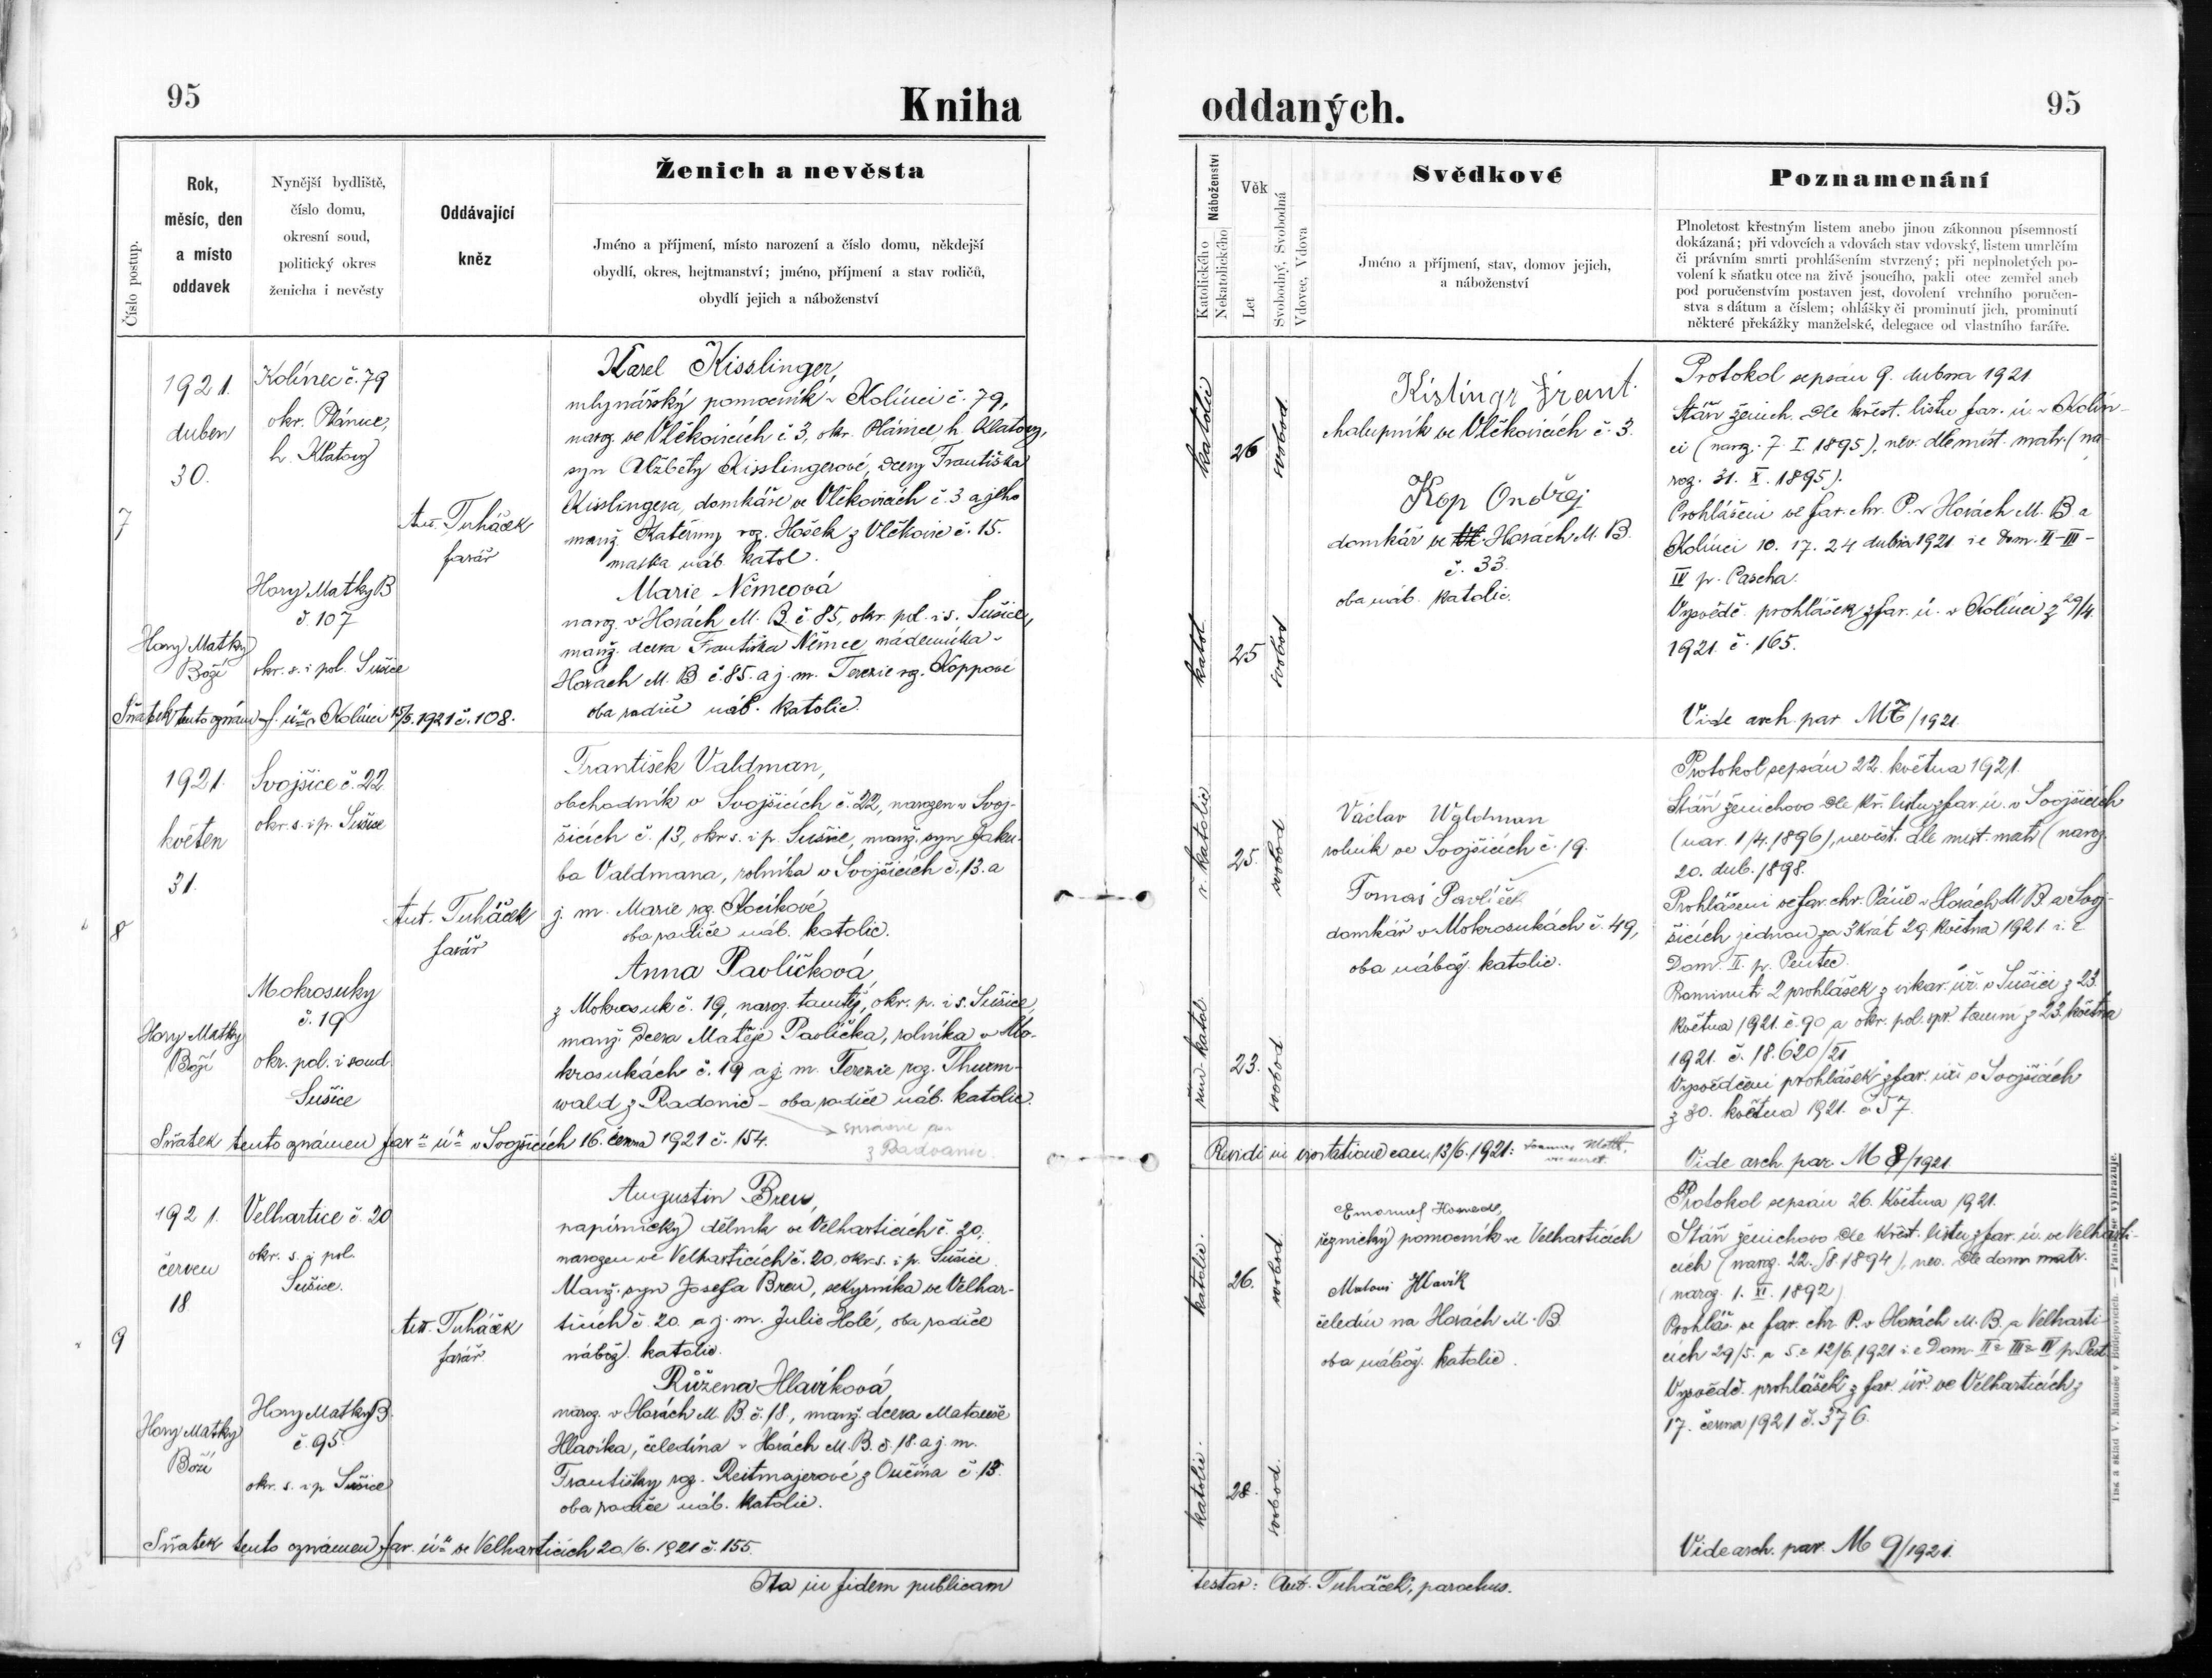 95
Kniha
oddaných.
95
Číslo postup.
Rok,
měsíc, den
a místo
oddavek
Nynější bydliště,
číslo domu,
okresní soud,
politický okres
ženicha i nevěsty
Oddávající
kněz
Ženich a nevěsta
Jméno a příjmení, místo narození a číslo domu, někdejší
obydlí, okres, hejtmanství; jméno, příjmení a stav rodičů,
obydlí jejich a náboženství
Náboženství
Katolického
Nekatolického
Věk
Let
Svobodný, Svobodná
Vdovec, Vdova
Svědkové
Jméno a příjmení, stav, domov jejich,
a náboženství
Poznamenání
Plnoletost křestným listem anebo jinou zákonnou písemností
dokázaná; při vdovcích a vdovách stav vdovský, listem umrlčím
či právním smrti prohlášením stvrzený; při neplnoletých po-
volení k sňatku otce na živě jsoucího, pakli otec zemřel aneb
pod poručenstvím postaven jest, dovolení vrchního poručen-
stva s dátum a číslem; ohlášky či prominutí jich, prominutí
některé překážky manželské, delegace od vlastního faráře.
7
1921.
duben
30.
Hory Matky
Boží
Kolinec č. 79
okr. Plánice,
h. Klatovy
Hory Matky B
č. 107
okr. s. i pol. Sušice
Ant. Tuháček
farář
Karel Kisslinger,
mlynářský pomocník v Kolinci č. 79,
naroz. ve Vlčkovicích č 3, okr. Plánice, h. Klatovy,
syn Alžběty Kisslingerové, dcery Františka
Kisslingera, domkáře ve Vlčkovicích č. 3 a jeho
manž. Kateřiny roz. Hošek z Vlčkovic č. 15.
matka náb. katol.
Marie Němcová
naroz. v Horách M. B. č 85, okr. pol. i s. Sušice,
manž. dcera Františka Němce, nádeníka v
Horách M. B č. 85. a j. m. Terezie roz. Koppové
oba rodiče náb. katolic.
Sňatek tento oznám. f. ú. v Kolinci 15/5. 1921 č. 108.
katolic
26
svobod.
katol.
25
svobod
Kislingr Frant.
chalupník ve Vlčkovicích č. 3.
Kop Ondřej
domkář ve Horách M. B.
č. 33.
oba náb. katolic.
Protokol sepsán 9. dubna 1921.
Stáří ženich. dle křest. listu far. ú. v Kolin-
ci (naroz. 7. I. 1895), nev. dle míst. matr. (na-
roz. 31. X. 1895).
Prohlášeni ve far. chr. P. v Horách M. B a
Kolinci 10. 17. 24 dubna 1921 i. e Dom. II-III-
IV p. Pascha.
Vysvědč. prohlášek z far. ú. v Kolinci z 29/4.
1921. č. 165.
Vide arch. par M 7/1921
8
1921.
květen
31.
Hory Matky
Boží
Svojšice č. 22
okr. s. i p. Sušice
Mokrosuky
č. 19
okr. pol. i soud.
Sušice
Ant. Tuháček
farář
František Valdman,
obchodník v Svojšicích č. 22, narozen v Svoj-
šicích č. 13, okr s. i p. Sušice, manž. syn Jaku-
ba Valdmana, rolníka v Svojšicích č. 13. a
j. m. Marie roz.
oba rodiče náb. katolic.
Anna Pavlíčková,
z Mokrosuk č. 19, naroz. tamtéž, okr. p. i s. Sušice,
manž. dcera Matěje Pavlíčka, rolníka v Mo-
krosukách č. 19 a j. m. Terezie roz. Thurm-
wald z Radonic - oba rodiče náb. katolic.
Sňatek tento oznámen far. ú. v Svojšicích 16. června 1921 č. 154.
ř. katolic
25.
svobod
řím. katol.
23.
svobod
Václav Waldman
rolník ve Svojšicích č. 19.
Tomáš Pavlíček
domkář v Mokrosukách č. 49,
oba nábož. katolic.
Revidi in 13/6. 1921:
Protokol sepsán 22. května 1921.
Stáří ženichovo dle kř. listu z far. ú. v Svojšicích
(nar. 1/4. 1896), nevěst. dle míst. matr (naroz.
20. dub. 1898.
Prohlášeni ve far. chr. Páně v Horách M B. a Svoj-
šicích jednou za 3krát 29. května 1921. i. e
Dom. II. p. Pentec.
Prominutí 2 prohlášek z vikar. úř. v Sušici z 23.
května 1921. č. 90 a okr. pol. spr. tamní z 23. května
1921. č. 18.620/
Vysvědčení prohlášek z far. úř. v Svojšicích
z 30. května 1921. č 57.
Vide arch. par. M 8/1921
9
1921.
červen
18
Hory Matky
Boží
Velhartice č. 20
okr. s. i pol.
Sušice.
Hory Matky B.
č. 95.
okr. s. i p. Sušice
Ant. Tuháček
farář
Augustin Breu,
papírnický dělník ve Velharticích č. 20,
narozen ve Velharticích č. 20, okr. s. i p. Sušice.
Manž. syn Josefa Breu, sekyrníka ve Velhar-
ticích č. 20. a j. m. Julie Holé, oba rodiče
nábož. katolic.
Růžena Hlavíková,
naroz. v Horách M. B. č. 18, manž. dcera Matouše
Hlavíka, čeledína v Horách M. B. č. 18. a j. m.
Františky roz. Reitmajerové z Oučína č. 13.
oba rodiče náb. katolic.
Sňatek tento oznámen far. ú. ve Velharticích 20./6. 1921 č. 155.
katolic.
26.
svobod.
katolic.
28.
svobod.
Emanuel
řeznický pomocník ve Velharticích
Hlavík
čeledín na Horách M. B
oba nábož. katolic.
Protokol sepsán 26. května 1921.
Stáří ženichovo dle křest. listu z far. ú. ve Velharti-
cích (naroz. 22./8. 1894), nev. dle dom. matr.
(naroz. 1. VI. 1892)
Prohláš. ve far. chr P. v Horách M. B. a Velharti-
cích 29/5. a 5. a 12/6. 1921 i. e Dom. II. III. IV p. Pent
Vysvědč. prohlášek z far. úř. ve Velharticích z
17. června 1921 č. 376.
Vide arch. par. M 9/1921.
Ita in fidem publicam
testor: Ant. Tuháček, parochus.
Tisk a sklad V. Manouše v Budějovicích.